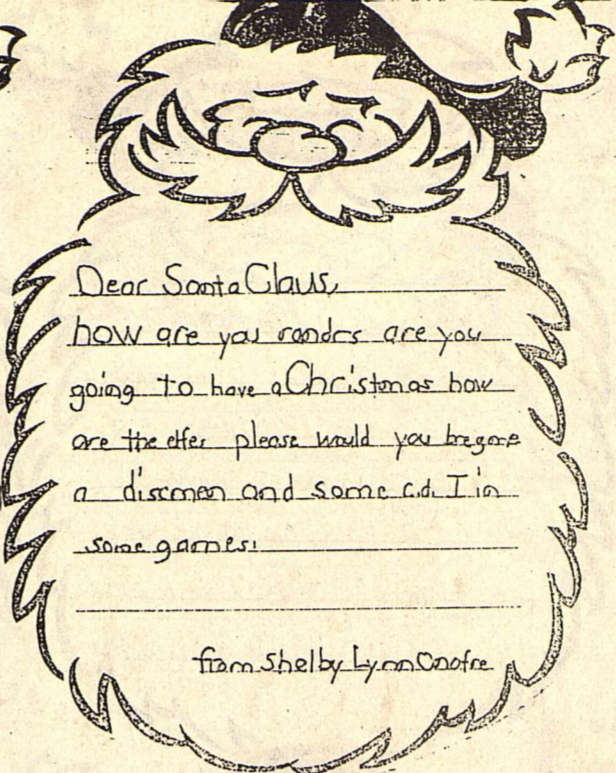 Dear Santa Claus,
how are you randrs are you
going to have a Christmas how
are the elfes please would you bregore
a discmen and some c.d. I in
some games!
from Shelby Lynn Onofre